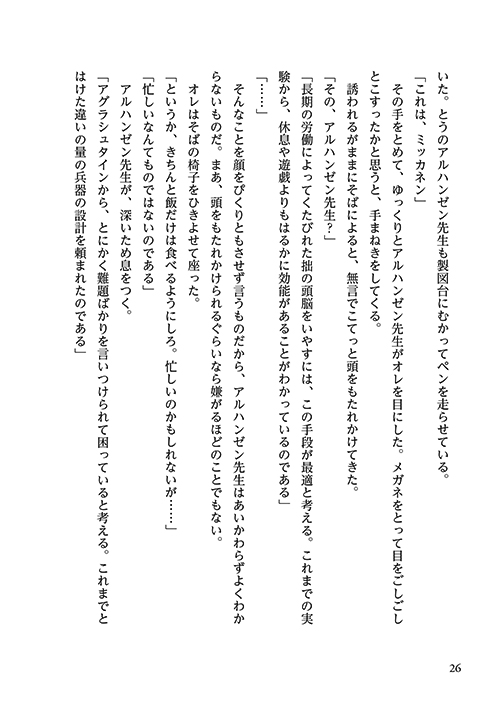 いた。とうのアルハンゼン先生も製図台にむかってペンを走らせている。
「これは、ミッカネン」
その手をとめて、ゆっくりとアルハンゼン先生がオレを目にした。メガネをとって目をごしごし
とこすったかと思うと、手まねきをしてくる。
誘われるがままにそばによると、無言でこてっと頭をもたれかけてきた。
「その、アルハンゼン先生？」
「長期の労働によってくたびれた拙の頭脳をいやすには、この手段が最適と考える。これまでの実
験から、休息や遊戯よりもはるかに効能があることがわかっているのである」
「……」
そんなことを顔をぴくりともさせず言うものだから、アルハンゼン先生はあいかわらずよくわか
らないものだ。まあ、頭をもたれかけられるぐらいなら嫌がるほどのことでもない。
オレはそばの椅子をひきよせて座った。
「というか、きちんと飯だけは食べるようにしろ。忙しいのかもしれないが……」
「忙しいなんてものではないのである」
アルハンゼン先生が、深いため息をつく。
「アグラシュタインから、とにかく難題ばかりを言いつけられて困っていると考える。これまでと
はけた違いの量の兵器の設計を頼まれたのである」
26